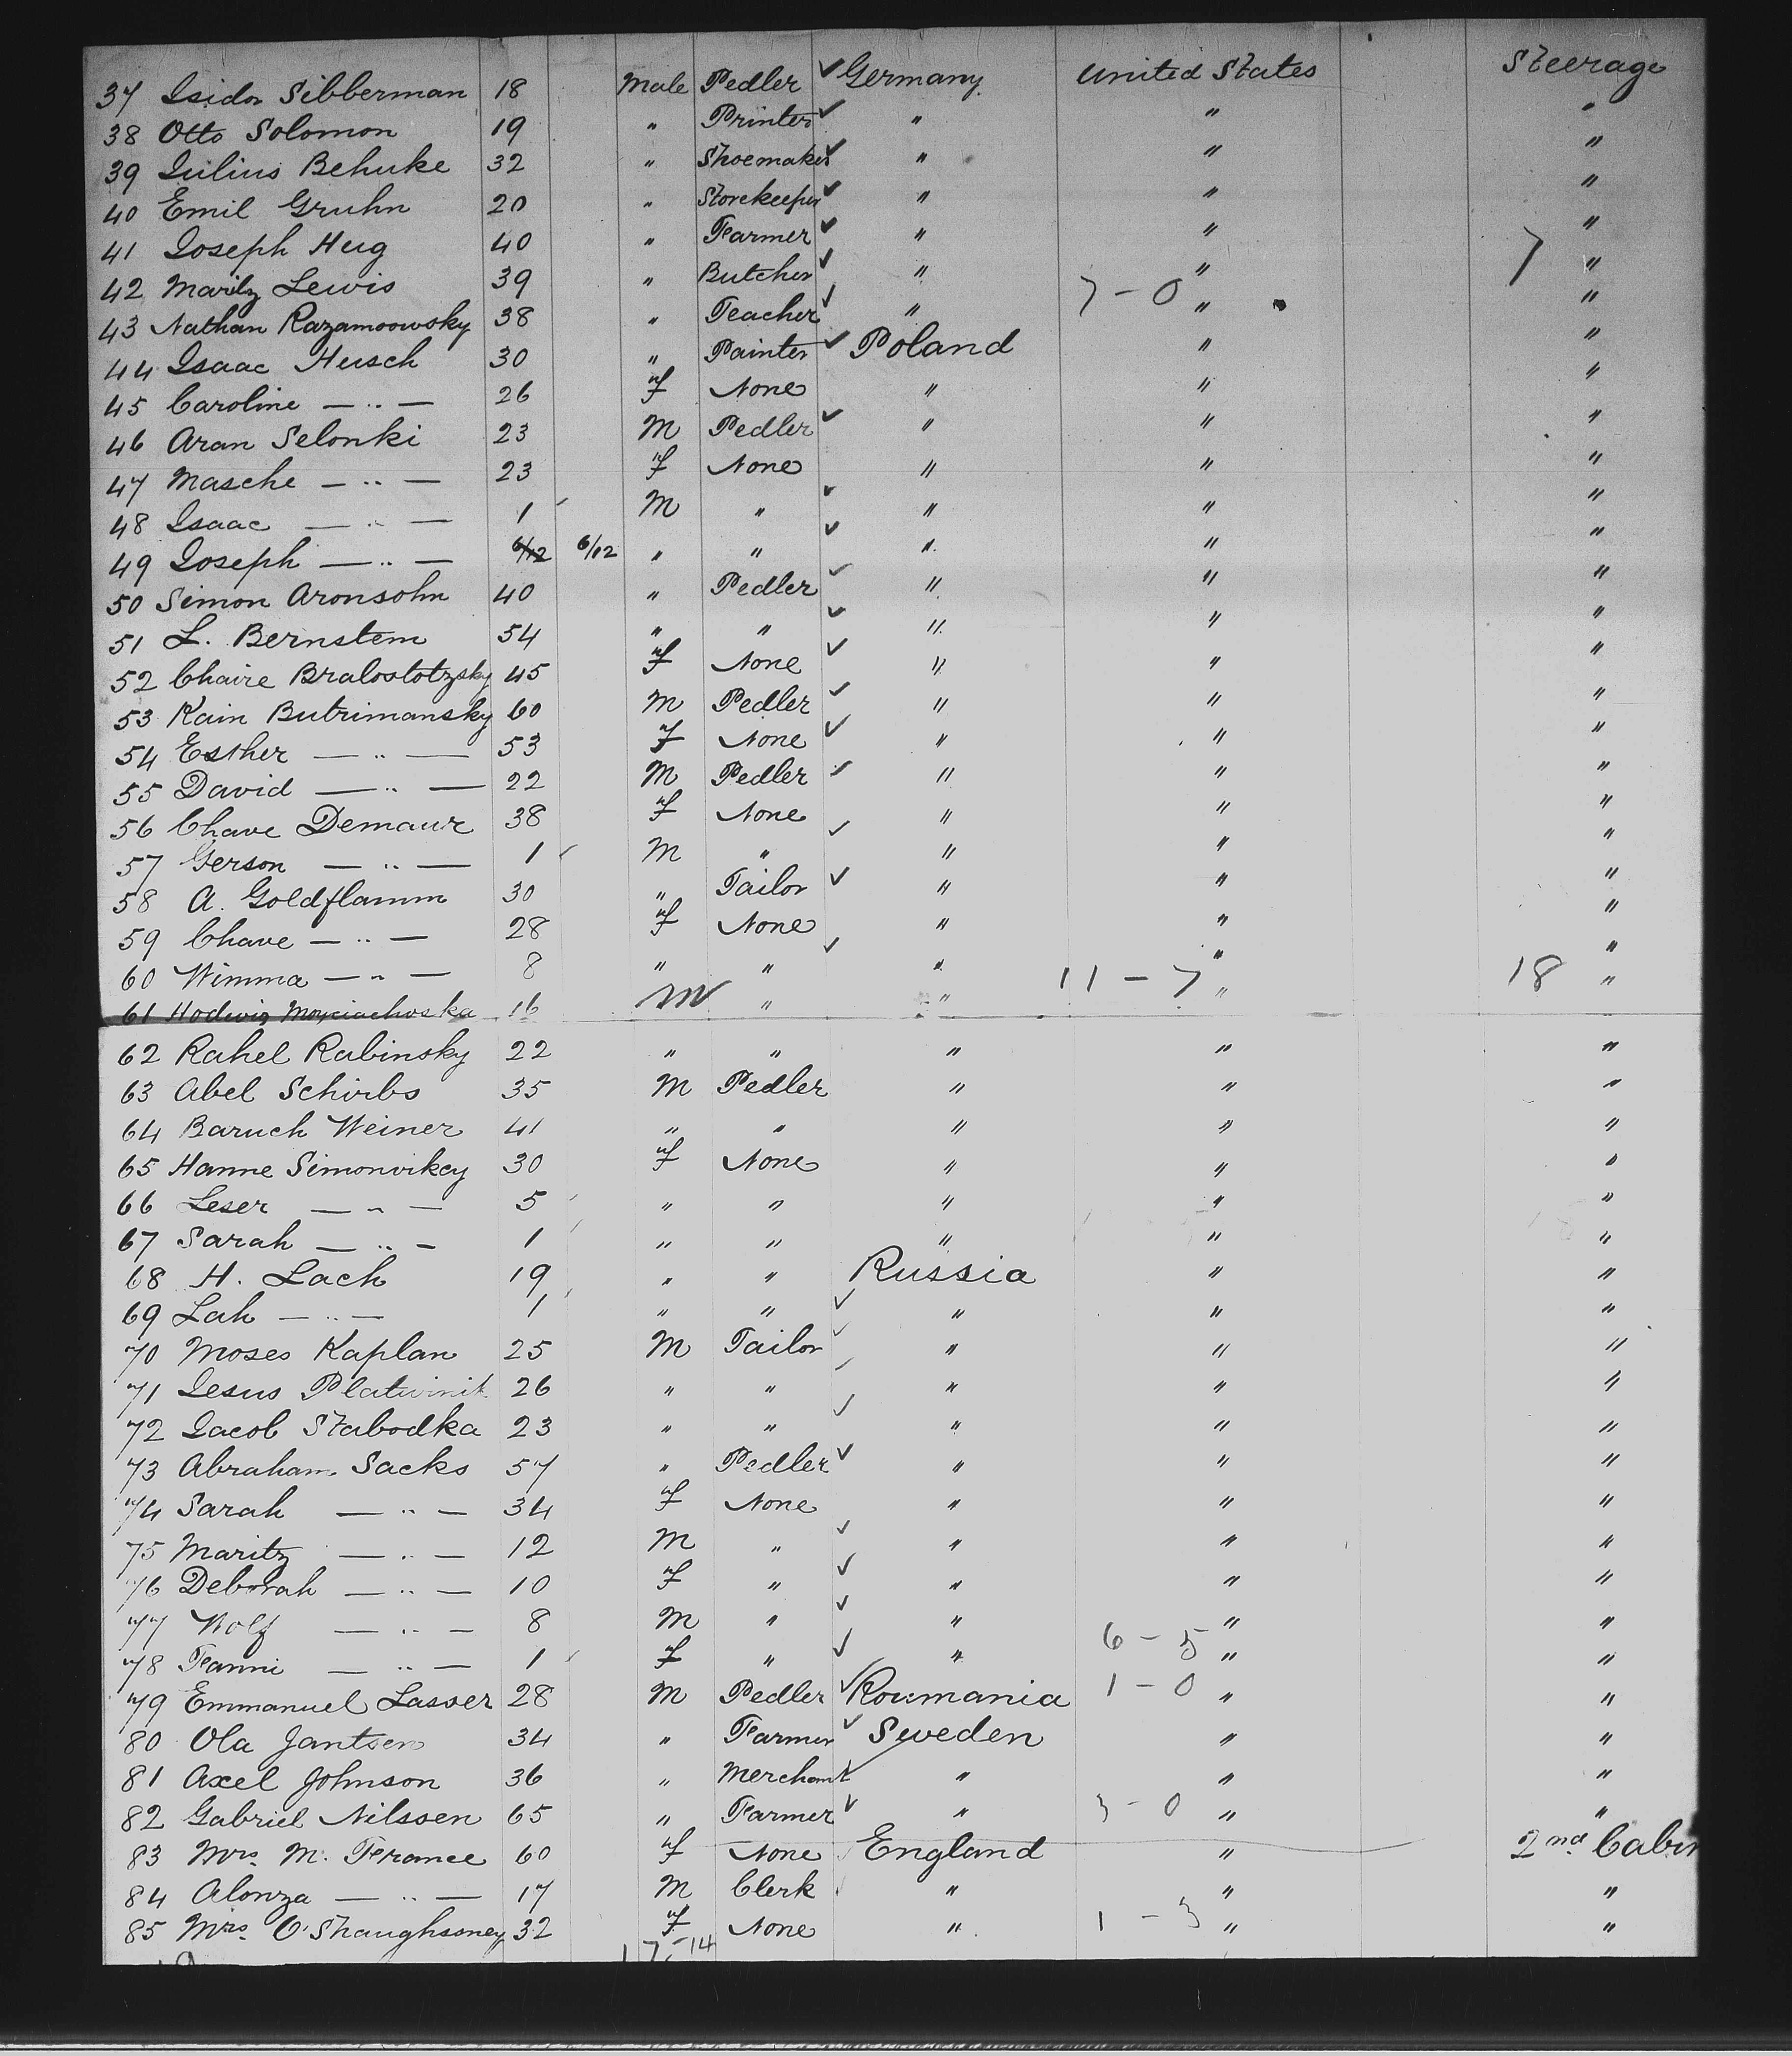 37 Isidor Sibberman 18 Male Pedler ✓ Germany United States Steerage
38 Otto Solomon 19 " Printer ✓ " " "
39 Julius Behuke 32 " Shoemaker ✓ " " "
40 Emil Gruhn 20 " Storekeeper ✓ " " "
41 Joseph Heig 40 " Farmer ✓ " " "
42 Maritz Lewis 39 " Butcher ✓ " " 7 "
43 Nathan Razamoowsky 38 " Teacher ✓ " 7 - 0 " "
44 Isaac Heusch 30 " Painter ✓ Poland " "
45 Caroline — " — 26 f None " " "
46 Aran Selonki 23 M Pedler ✓ " " "
47 Masche — " — 23 f None " " "
48 Isaac — " — 1 M " ✓ " " "
49 Joseph — " — 6/12 6/12 " " ✓ " " "
50 Simon Aronsohn 40 " Pedler ✓ " " "
51 L. Bernstem 54 " " ✓ " " "
52 Chaire Bralostotzsky 45 f None ✓ " " "
53 Kain Butrimansky 60 M Pedler ✓ " " "
54 Esther — " — 53 f None ✓ " " "
55 David — " — 22 M Pedler ✓ " " "
56 Chave Demaur 38 f None " " "
57 Gerson — " — 1 M " ✓ " " "
58 A. Goldflamm 30 " Tailor ✓ " " "
59 Chave — " — 28 f None " " "
60 Wimma — " — 8 " " ✓ " " "
61 Hodwig 16 M " " 11 - 7 " 18 "
62 Rahel Rabinsky 22 " " " " "
63 Abel Schirbs 35 M Pedler " " "
64 Baruch Weiner 41 " " " " "
65 Hanne Simonvikey 30 f None " " "
66 Leser — " — 5 " " " " "
67 Sarah — " — 1 " " " " "
68 H. Lach 19 " " Russia " "
69 Lah — " — 1 " " ✓ " " "
70 Moses Kaplan 25 M Tailor ✓ " " "
71 Jesus Platwinik 26 " " ✓ " " "
72 Jacob Stabodka 23 " " ✓ " " "
73 Abraham Sacks 57 " Pedler ✓ " " "
74 Sarah — " — 34 f None " " "
75 Maritz — " — 12 M " ✓ " " "
76 Deborah — " — 10 f " ✓ " " "
77 Wolf — " — 8 M " ✓ " " "
78 Fanni — " — 1 f " ✓ " 6 - 5 " "
79 Emmanuel Lasser 28 M Pedler ✓ Roumania 1 - 0 " "
80 Ola Jantsen 34 " Farmer ✓ Sweden " "
81 Axel Johnson 36 " Merchant ✓ " " "
82 Gabriel Nilssen 65 " Farmer ✓ " 3 - 0 " "
83 Mrs. M. France 60 f None England " 2nd Cabin
84 Alonza — " — 17 M Clerk " " "
85 Mrs. O'Shaughssney 32 f None " 1 - 3 " "
17 - 14